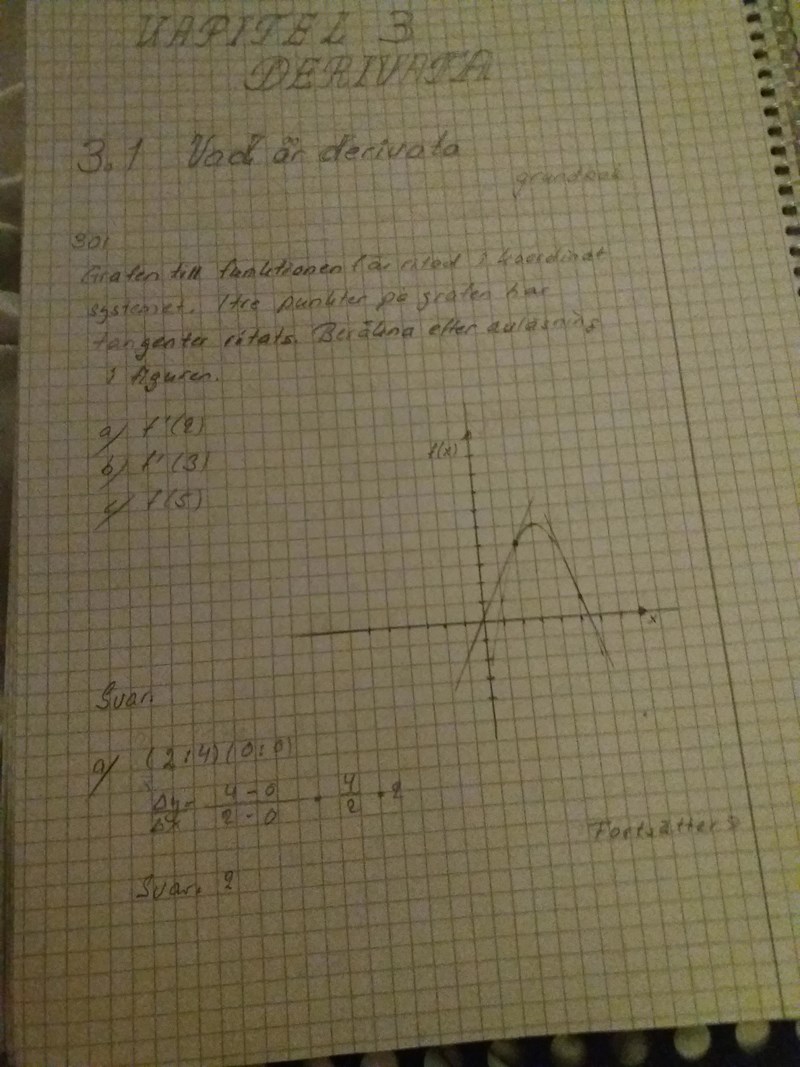 KAPITEL 3
DERIVATA
3.1 Vad är derivata
grundbok
301
Grafen till funktionen f är ritad i koordinat
systemet. I tre punkter på grafen har
tangenter ritats. Beräkna efter avläsning
i figuren.
a) f'(2)
b) f'(3)
c) f'(5)
f(x)
x
Svar.
a) (2;4) (0;0)
Δy/Δx = 4-0/2-0 = 4/2 = 2
Svar. 2
Fortsätter